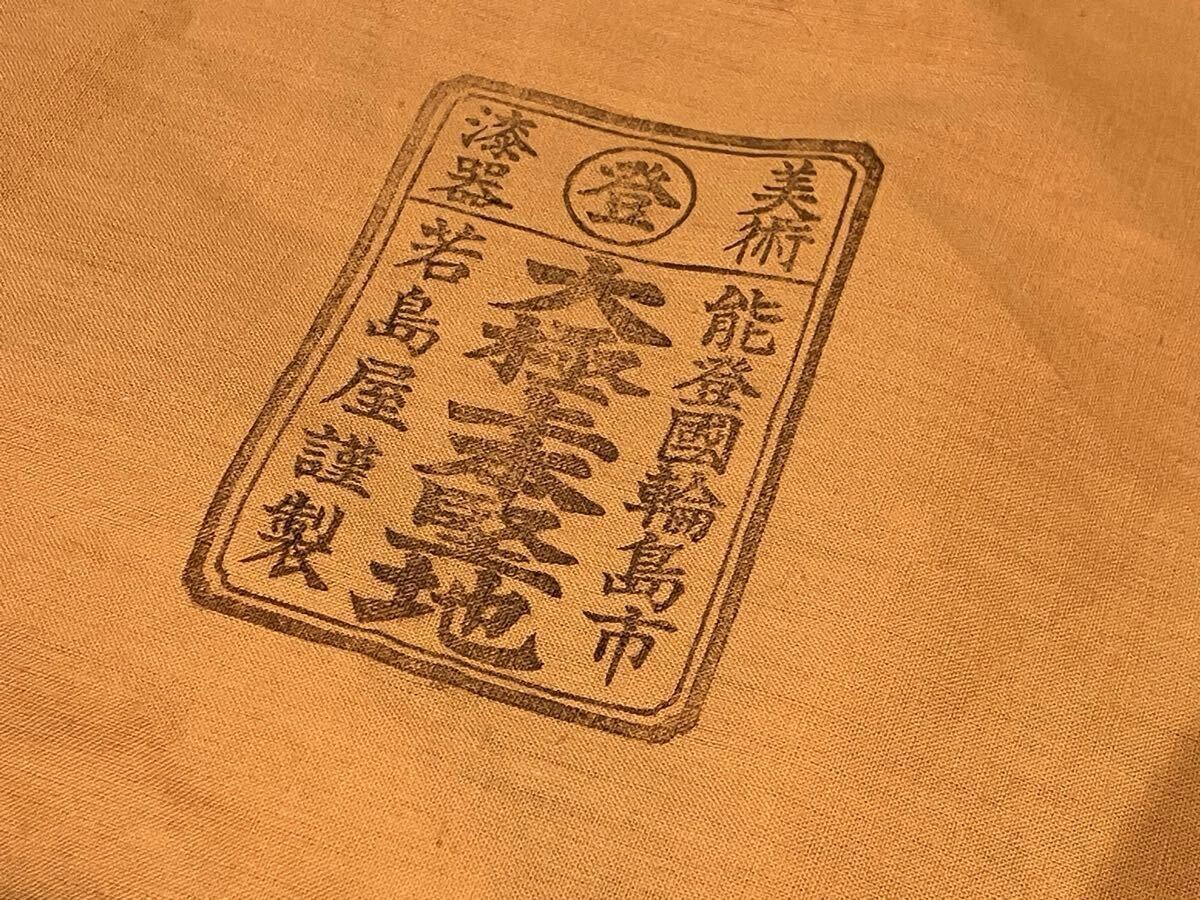 美術
登
漆器
能登國輪島市
大極本堅地
若島屋謹製